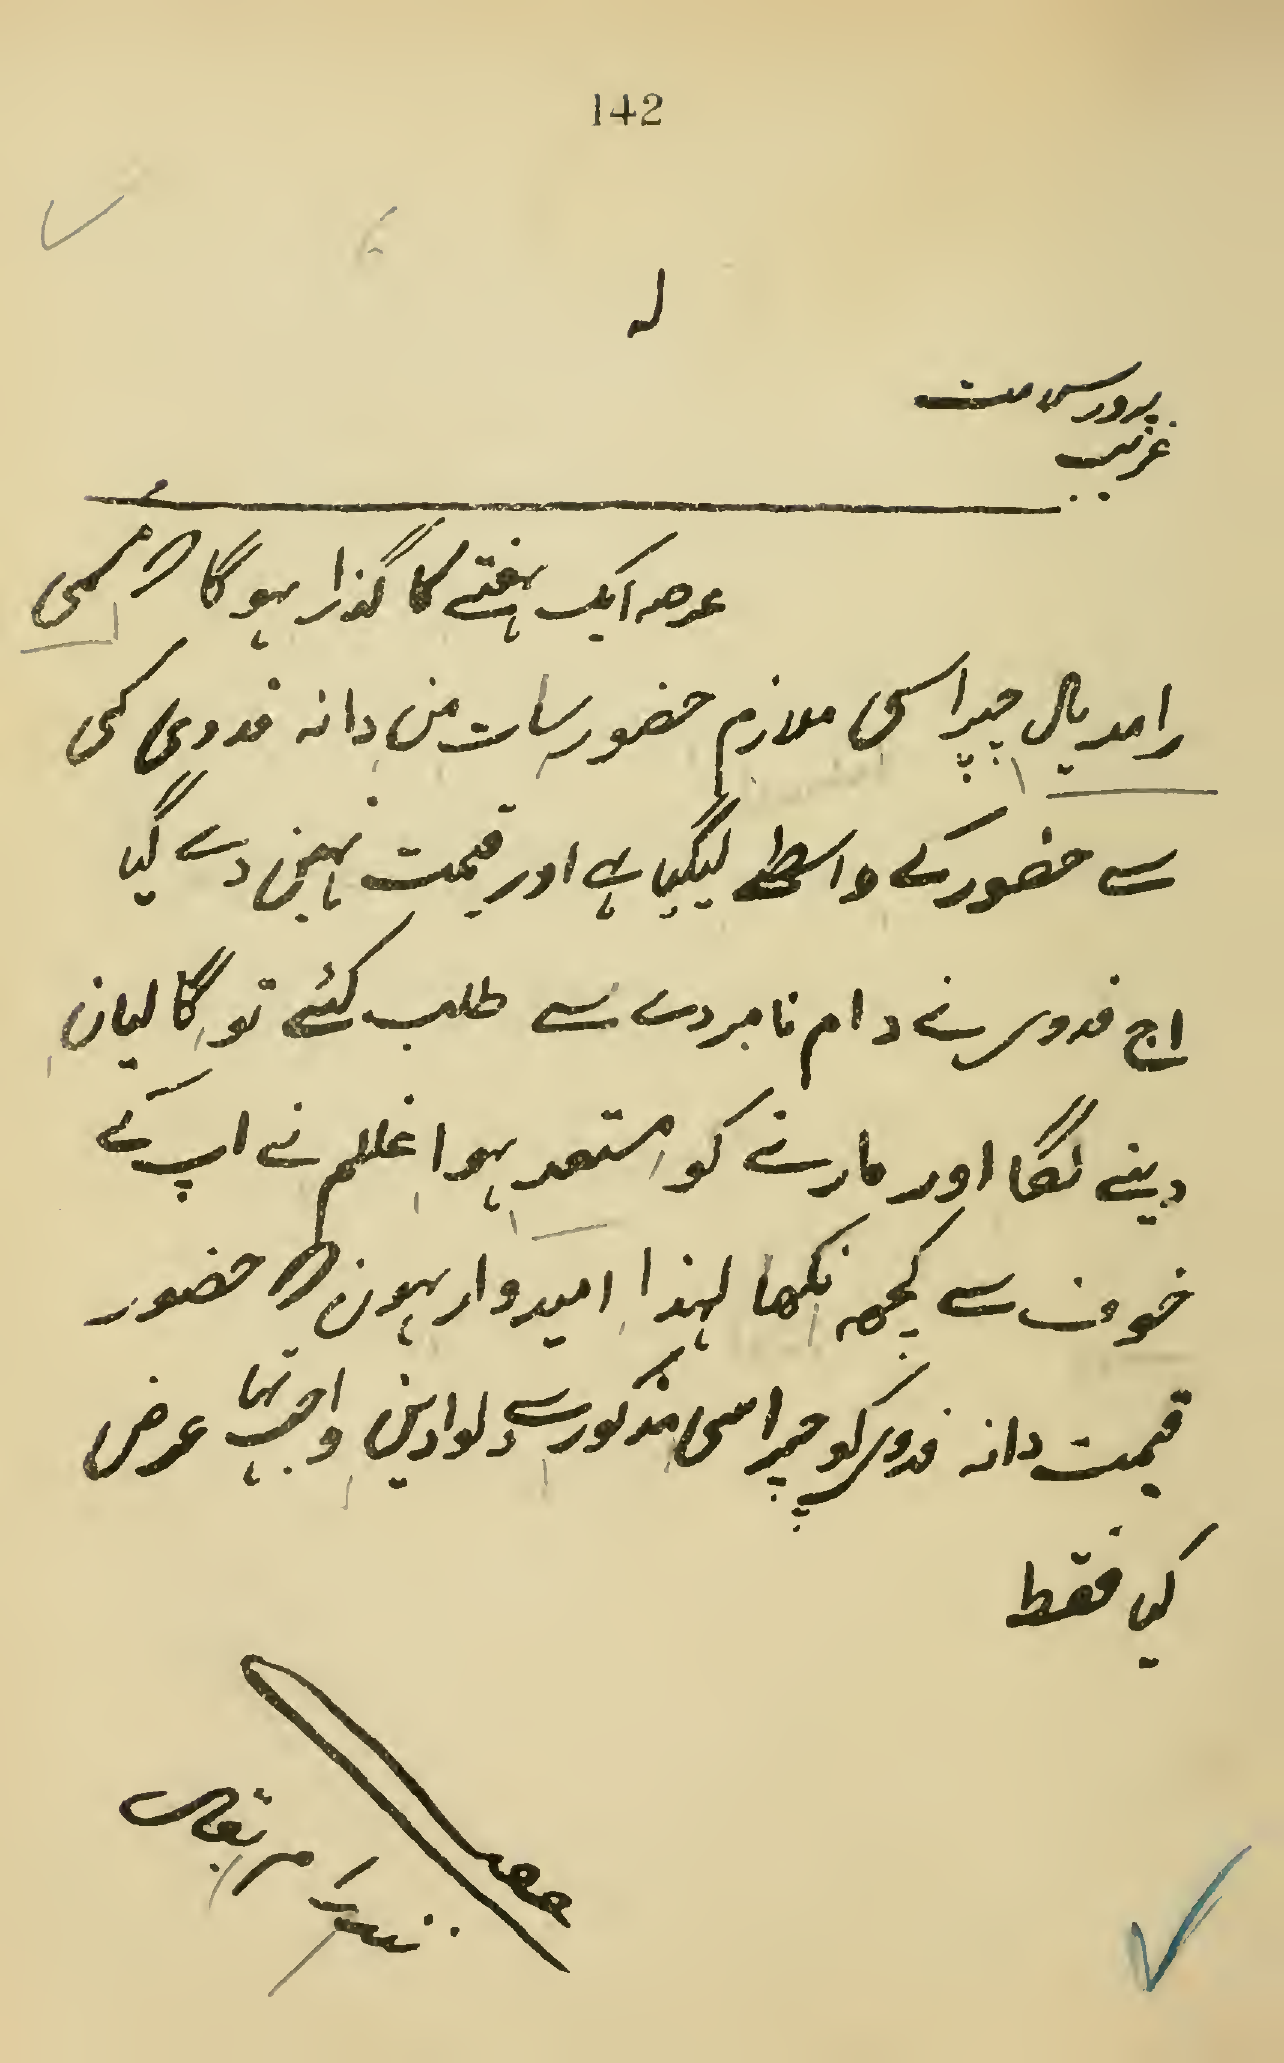 142
غریب پرور سلامت
عرصہ ایک ہفتے کا گذرا ہوگا کہ مسمی
رامدیال چپراسی ملازم حضور سات من دانہ فدوی کی
سے حضور کے واسطے لیگیا ہے اور قیمت نہین دے گیا
اج فدوی نے دام نامبردے سے طلب کئے تو گالیان
دینے لگا اور مارنے کو مستعد ہوا نے اپ کے
خوف سے کچھ نکہا لہذا امیدوار ہون کہ حضور
قیمت دانہ فدوی کو چپراسی مذکور سے دلوادین واجب تہا عرض
کیا فقط